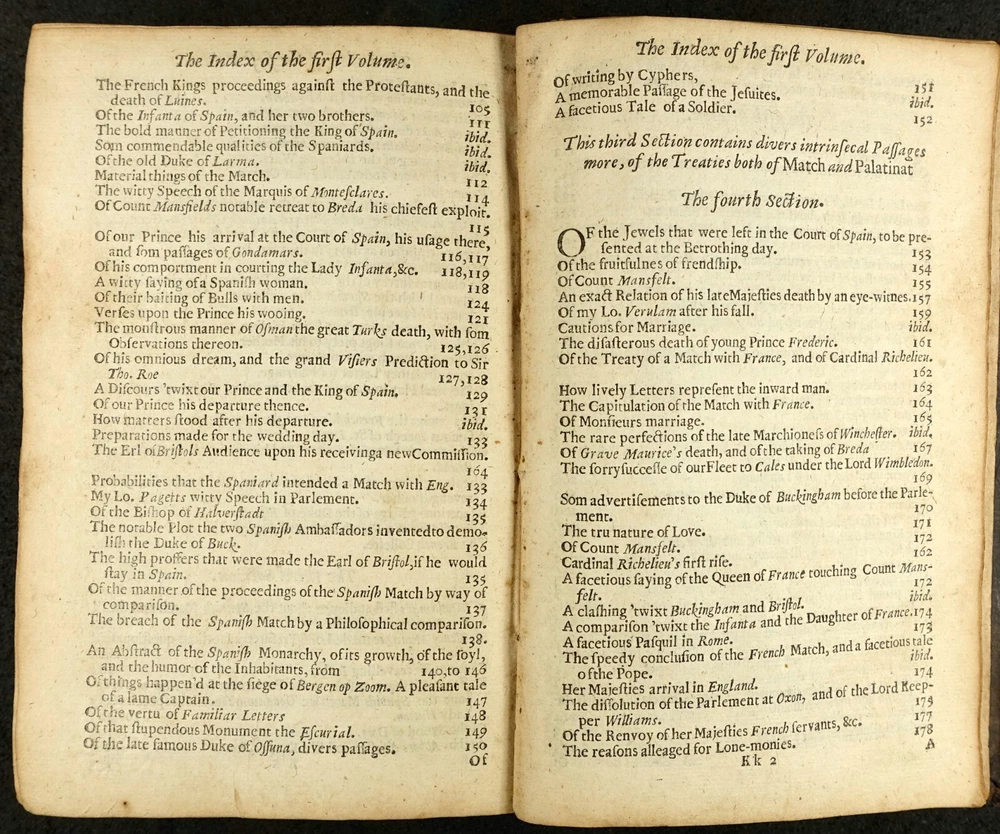 The Index of the firſt Volume.
The French Kings proceedings againſt the Proteſtants, and the
death of Luines. 105
Of the Infanta of Spain, and her two brothers. 111
The bold manner of Petitioning the King of Spain. ibid.
Som commendable qualities of the Spaniards. ibid.
Of the old Duke of Larma. ibid.
Material things of the Match. 112
The witty Speech of the Marquis of Monteſclares. 114
Of Count Mansfields notable retreat to Breda his chiefeſt exploit.
115
Of our Prince his arrival at the Court of Spain, his uſage there,
and ſom paſſages of Gondamars. 116,117
Of his comportment in courting the Lady Infanta,&c. 118,119
A witty ſaying of a Spaniſh woman. 118
Of their baiting of Bulls with men. 124
Verſes upon the Prince his wooing. 121
The monſtrous manner of Oſman the great Turks death, with ſom
Obſervations thereon. 125,126
Of his omnious dream, and the grand Viſiers Prediction to Sir
Tho. Roe 127,128
A Diſcours 'twixt our Prince and the King of Spain. 129
Of our Prince his departure thence. 131
How matters ſtood after his departure. ibid.
Preparations made for the wedding day. 133
The Erl of Briſtols Audience upon his receiving a new Commiſſion.
164
Probabilities that the Spaniard intended a Match with Eng. 133
My Lo. Pagetts witty Speech in Parlement. 134
Of the Biſhop of Halverſtadt 135
The notable Plot the two Spaniſh Ambaſſadors invented to demo-
liſh the Duke of Buck. 136
The high proffers that were made the Earl of Briſtol, if he would
ſtay in Spain. 135
Of the manner of the proceedings of the Spaniſh Match by way of
compariſon. 137
The breach of the Spaniſh Match by a Philoſophical compariſon.
138.
An Abſtract of the Spaniſh Monarchy, of its growth, of the ſoyl,
and the humor of the Inhabitants, from 140,to 146
Of things happen'd at the ſiege of Bergen op Zoom. A pleaſant tale
of a lame Captain. 147
Of the vertu of Familiar Letters 148
Of that ſtupendous Monument the Eſcurial. 149
Of the late famous Duke of Oſſuna, divers paſſages. 150
Of
The Index of the firſt Volume.
Of writing by Cyphers, 151
A memorable Paſſage of the Jeſuites. ibid.
A facetious Tale of a Soldier. 152
This third Section contains divers intrinſecal Paſſages
more, of the Treaties both of Match and Palatinat
The fourth Section.
OF the Jewels that were left in the Court of Spain, to be pre-
ſented at the Betrothing day. 153
Of the fruitfulnes of frendſhip. 154
Of Count Mansfelt. 155
An exact Relation of his late Majeſties death by an eye-witnes. 157
Of my Lo. Verulam after his fall. 159
Cautions for Marriage. ibid.
The diſaſterous death of young Prince Frederic. 161
Of the Treaty of a Match with France, and of Cardinal Richelieu.
162
How lively Letters repreſent the inward man. 163
The Capitulation of the Match with France. 164
Of Monſieurs marriage. 165
The rare perfections of the late Marchioneſs of Wincheſter. ibid.
Of Grave Maurice's death, and of the taking of Breda 167
The ſorry ſucceſſe of our Fleet to Cales under the Lord Wimbledon.
169
Som advertiſements to the Duke of Buckingham before the Parle-
ment. 170
The tru nature of Love. 171
Of Count Mansfelt. 172
Cardinal Richelieu's firſt riſe. 162
A facetious ſaying of the Queen of France touching Count Mans-
felt. 172
A claſhing 'twixt Buckingham and Briſtol. ibid.
A compariſon 'twixt the Infanta and the Daughter of France. 174
A facetious Paſquil in Rome. 173
The ſpeedy concluſion of the French Match, and a facetious tale
of the Pope. ibid.
Her Majeſties arrival in England. 174
The diſſolution of the Parlement at Oxon, and of the Lord Keep-
per Williams. 175
Of the Renvoy of her Majeſties French ſervants, &c. 177
The reaſons alleaged for Lone-monies. 178
Kk 2 A